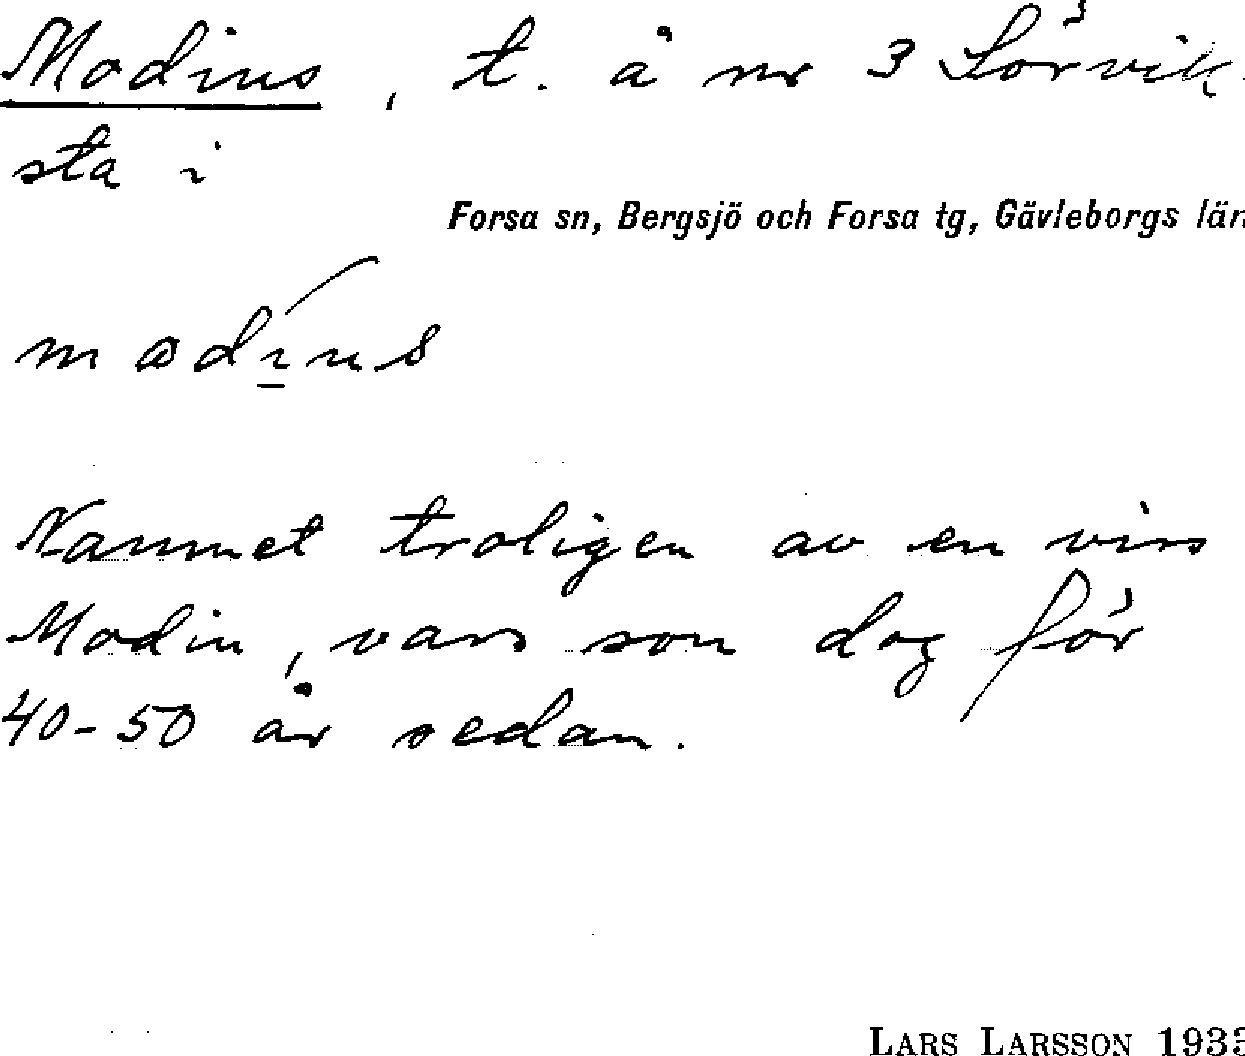 Modins, t. å nr 3 Sörvik-
sta i
Forsa sn, Bergsjö och Forsa tg, Gävleborgs län
Namnet troligen av en viss
Modin, vars son dog för
40-50 år sedan.
LARS LARSSON